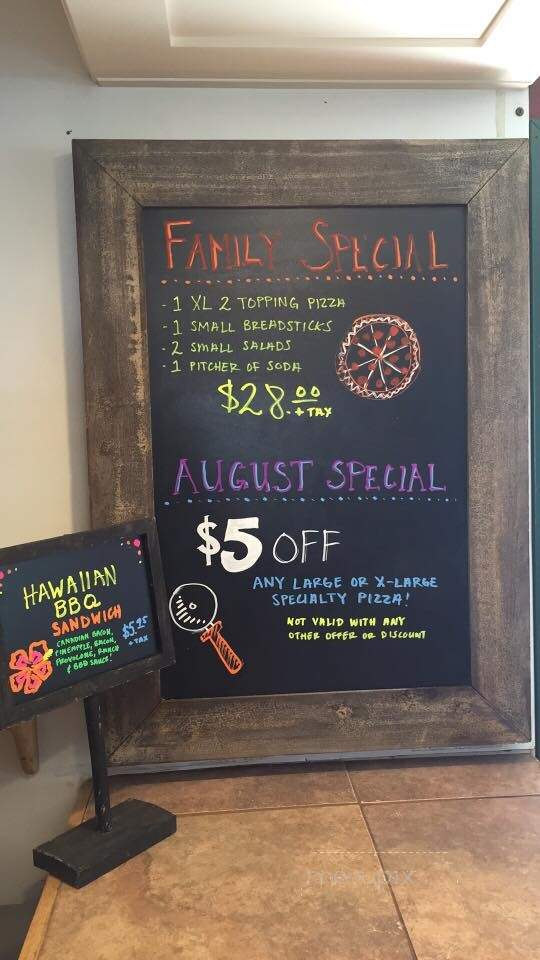 FAMILY SPECIAL
- 1 XL 2 TOPPING PIZZA
- 1 SMALL BREADSTICKS
- 2 SMALL SALADS
- 1 PITCHER OF SODA
$28.00
+ TAX
AUGUST SPECIAL
$5 OFF
ANY LARGE OR X-LARGE
SPECIALTY PIZZA!
NOT VALID WITH ANY
OTHER OFFER OR DISCOUNT
HAWAIIAN
BBQ
SANDWICH
CANADIAN BACON,
PINEAPPLE, BACON,
PROVOLONE, RANCH
& BBQ SAUCE!
$5.95
+ TAX
menupix